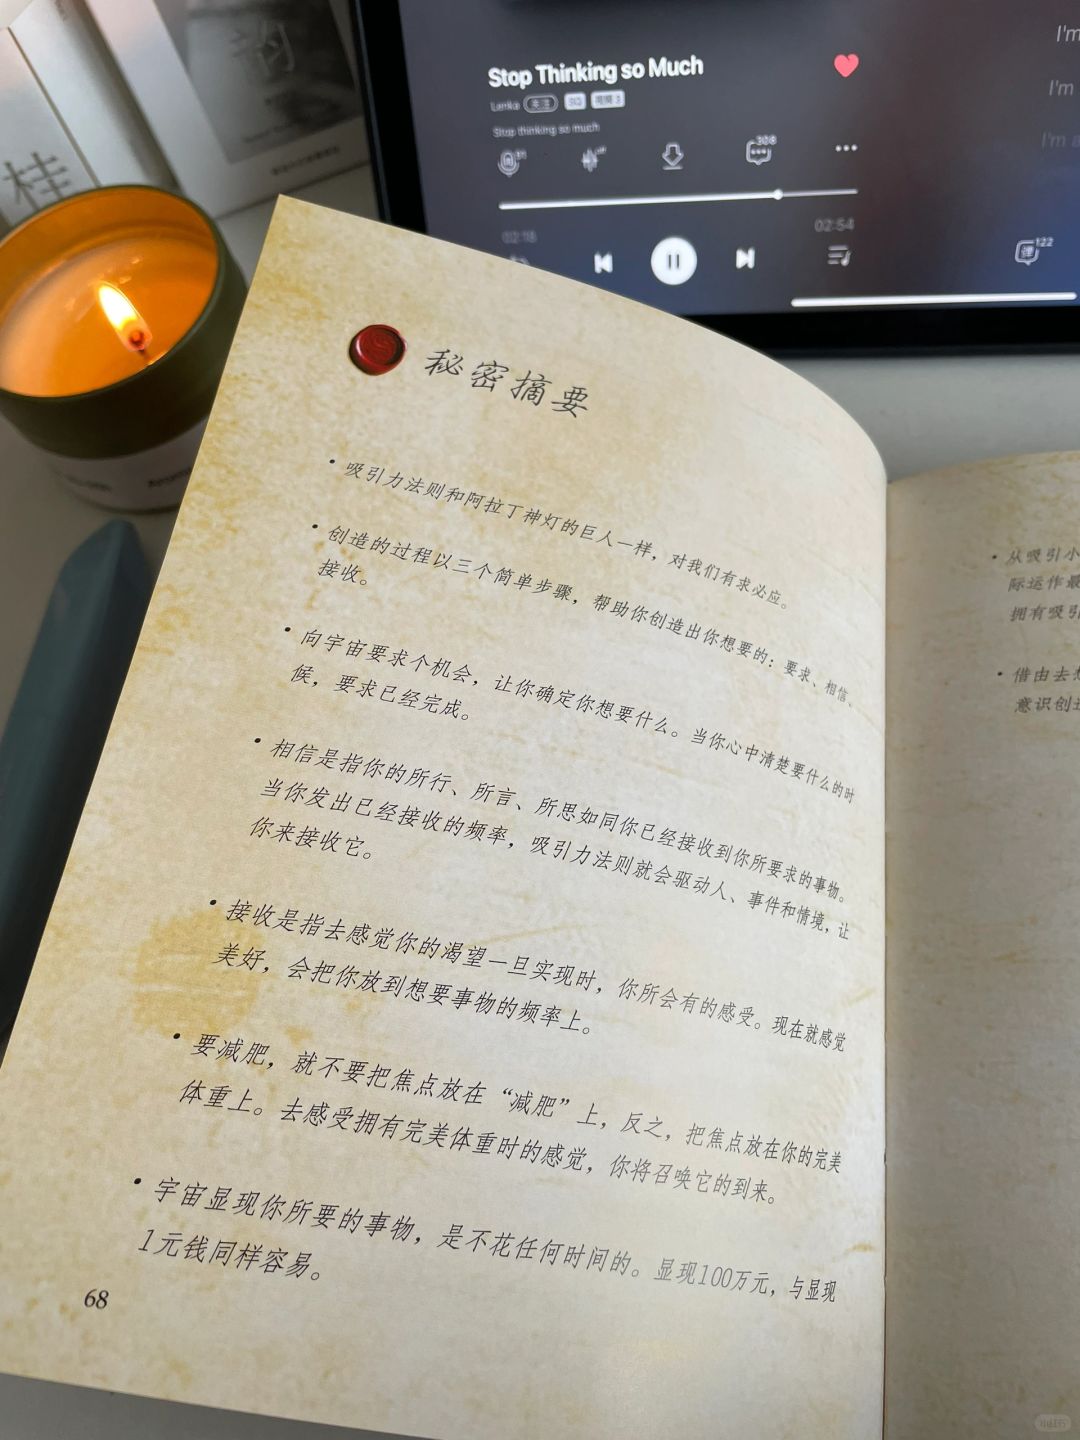 Stop Thinking so Much
Lenka
关注
SQ
视频
Stop thinking so much
308
02:18
02:54
弹
122
I'm
I'm
I'm a
韵
桂
秘密摘要
• 吸引力法则和阿拉丁神灯的巨人一样，对我们有求必应。
• 创造的过程以三个简单步骤，帮助你创造出你想要的：要求、相信、
接收。
• 向宇宙要求个机会，让你确定你想要什么。当你心中清楚要什么的时
候，要求已经完成。
• 相信是指你的所行、所言、所思如同你已经接收到你所要求的事物。
当你发出已经接收的频率，吸引力法则就会驱动人、事件和情境，让
你来接收它。
• 接收是指去感觉你的渴望一旦实现时，你所会有的感受。现在就感觉
美好，会把你放到想要事物的频率上。
• 要减肥，就不要把焦点放在“减肥”上，反之，把焦点放在你的完美
体重上。去感受拥有完美体重时的感觉，你将召唤它的到来。
• 宇宙显现你所要的事物，是不花任何时间的。显现100万元，与显现
1元钱同样容易。
68
• 从吸引小
际运作最
拥有吸引
• 借由去想
意识创造
小红书